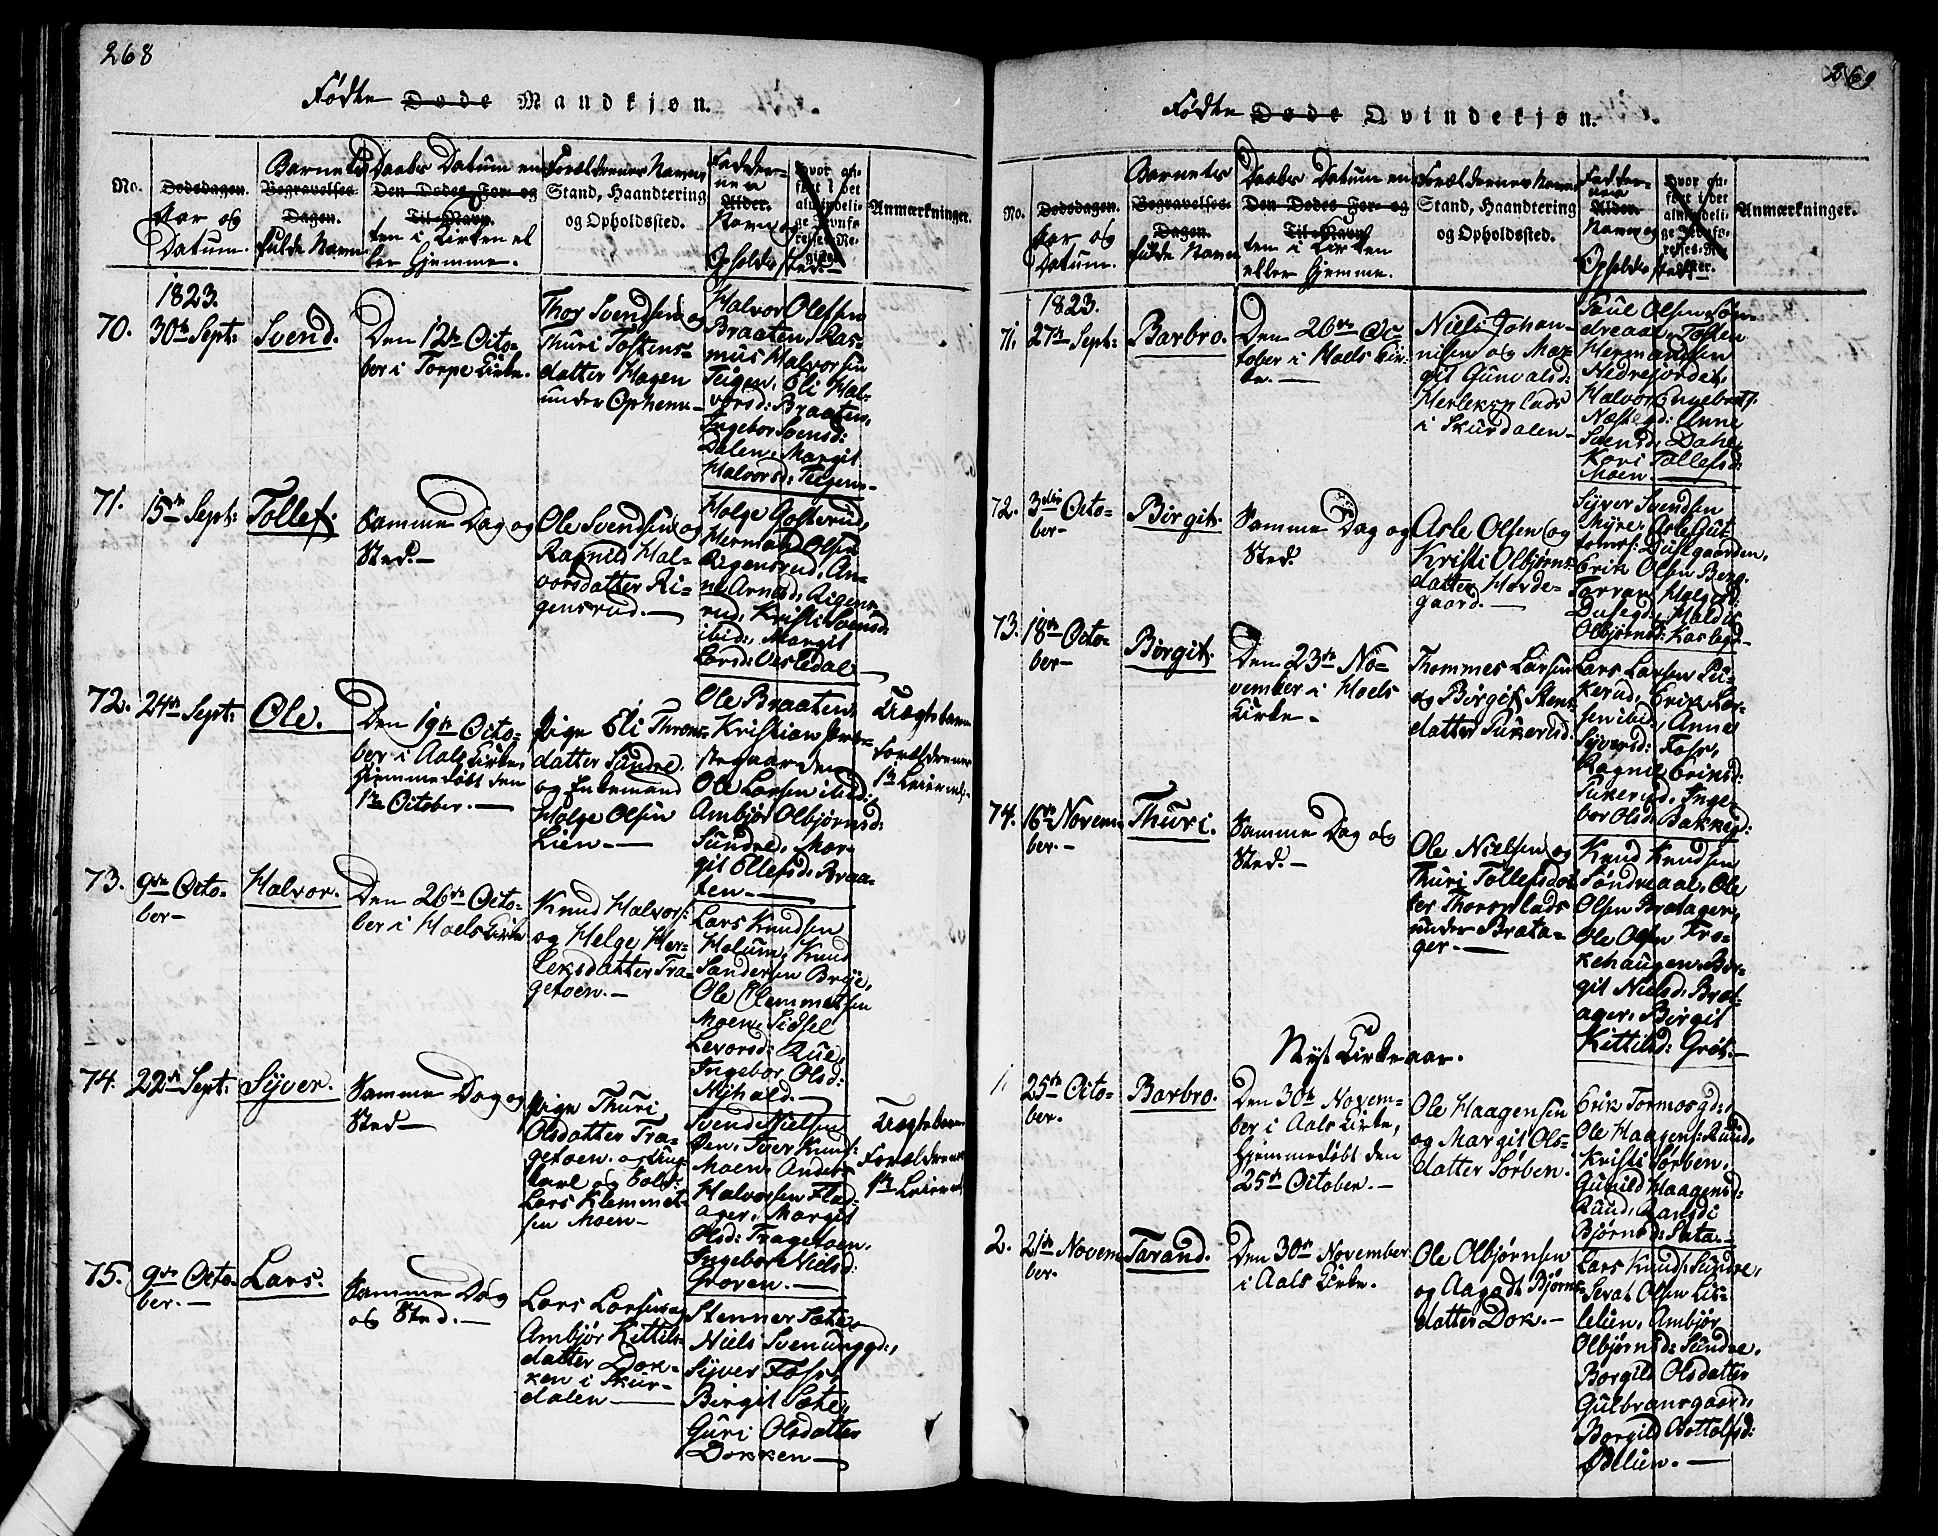 268
Fødte Døde Mandkjøn.
No.
Dødsdagen.
Aar og
Datum.
Barnets
Begravelses-
Dagen.
fulde Navn
Daabs Datum en
Den Dødes For- og
Til-Navn.
ten i Kirken el
ler Hjemme.
Forældrenes Navne
Stand, Haandtering
og Opholdssted.
Fadder-
nes
Alder.
Navn og
Opholds sted.
Hvor an-
ført i det
almindeli-
ge Jevnfø-
relses-Re-
gister.
Anmærkninger.
1823.
70. 30te Sept:
Svend.
Den 12te Octo-
ber i Torpe Kirke.
Thor Svendsen og
Thuri Tostens-
datter Hagen
under Ophem-
Halvor Olesen
Braaten, Ras-
mus Halvorsen
Teigen, Eli Hal-
vorsd: Braaten,
Ingebor Svensd:
Dalen, Margit
Halvorsd: Teigen-
71. 15te Sept:
Tollef.
Samme Dag og
Sted.-
Ole Svendsen og
Ragnild Hal-
vorsdatter Ri-
gensrud.-
Helge Golterud,
Herman Olsen
Rigensrud, An-
ne Arnesd: Rigens-
rud, Kristi Svensd:
ibid:, Margit
Larsd: Vestedal-
72. 24de Sept:
Ole.
Den 19de Octo-
ber i Aals Kirke,
hjemmedøbt den
1te October.-
Pige Eli Throns-
datter Sundre,
og Enkemand
Helge Olsen
Lien-
Ole Braaten,
Kristian Præ-
stegaarden
Ole Larsen ibid:,
Ambjør Olbjørnsd:
Sundre, Mar-
git Ellefsd: Braa-
ten-
Uægte barn
Forældrenes
1te Leiermaal-
73. 9de Octo-
ber-
Halvor.
Den 26de Octo-
ber i Hoels Kirke
Knud Halvors:
og Helge Her-
leksdatter Tra-
getoen.-
Lars Knudsen
Holum, Knud
Sandersen Brye,
Ole Clemmetsen
Moen, Sidsel
Levorsd: Rue,
Ingebor Olsd:
Nyhald.-
74. 22de Sept:
Syver.
Samme Dag og
Sted-
Pige Thuri
Olsdatter Tra-
getoen og Ung-
karl og Sold:
Lars Klemmet-
sen Moen-
Svend Nielsen
Øen, Iver Knuds:
Moen, Anders
Halvorsen Flad-
ager, Margit
Olsd: Tragetoen,
Ingebor Nielsd:
Groven.-
Uægte barn
Forældrenes
1te Leiermaal
75. 9de Octo-
ber.-
Lars.
Samme Dag
og Sted.-
Lars Larsen og
Ambjør Kittils-
datter Dok-
ken i Skur-
dalen-
Stenner Sæte,
Niels Svenunggd:,
Syver Foss,
Birgit Sæte,
Guri Olsdatter
Dokken-
269
Fødte Døde Qvindekjøn.
No.
Dødsdagen.
Aar og
Datum.
Barnets
Begravelses-
Dagen.
fulde Navn
Daabs Datum en
Den Dødes For- og
Til-Navn
ten i Kirken
eller Hjemme.
Forældrenes Navne
Stand, Haandtering
og Opholdssted.
Fadder-
nes
Alder.
Navn og
Opholds sted.
Hvor an-
ført i det
almindeli-
ge Jevnfø-
relses-Re-
gister.
Anmærkninger.
1823.
71. 27de Sept:
Barbro.
Den 26de Oc-
tober i Hoels Kir-
ke.-
Niels Johan-
nesen og Mar-
git Gunvalsd:
Herleksplads
i Skurdalen-
Paul Olsen Søn-
dreaal, Tosten
Hermandsen
Nedrejordet,
Halvor Engebrets:
Næstegd: Anne
Svensd: Dahle,
Kari Tollefsd:
Moen.-
72. 3die Octo-
ber-
Birgit.
Samme Dag og
Sted.
Asle Olsen og
Kristi Olbjørns-
datter Horde-
gaard.-
Syver Svendsen
Myre, Asle Gut-
torms: Dusegaarden,
Erik Olsen Berg,
Tarran Helgesd:
Dusegd: Maldi
Olbjørnsd: Kaslegd-
73. 18de Octo-
ber-
Birgit.
Den 23de No-
vember i Hoels
Kirke-
Thommes Larsen
og Birgit Stens-
datter Pukerud.
Lars Larsen Pu-
kerud, Erik Lar-
sen ibid:, Anne
Syversd: Foss,
Ragnil Eriksd:
Pukerud, Inge-
bor Olsd: Bakkegd:
74. 16de Novem-
ber.-
Thuri.
Samme Dag og
Sted.-
Ole Nielsen og
Thuri Tollefsdat-
ter Thoresplads
under Brata-
ger.-
Knud Knudsen
Søndreaal, Ole
Olsen Bratager,
Ole Olsen Fro-
kehaugen, Bir-
git Nielsd: Brat-
ager, Birgit
Kittilsd: Grøt.-
Nyt Kirkeaar.
1. 25de Octo-
ber.
Barbro.
Den 30te Novem-
ber i Aals Kirke,
hjemmedøbt den
25de October.-
Ole Haagensen
og Margit Ols-
datter Sørben.
Erik Tormosgd:,
Ole Haagens: Ruud,
Kristi Sørben,
Gunild Haagensd:
Ruud, Randi
Bjørnsd: Sata.-
2. 21de Novem-
ber.
Tarand.
Den 30te November
i Aals Kirke.
Ole Olbjørnsen
og Aagodt Bjørns-
datter Dok.-
Lars Knuds: Sundre,
Sevat Olsen Lis-
lelien, Ambjør
Olbjørnsd: Sundre,
Borgild Olsdatter
Gulbransgaard,
Borgild Bottolfsd:
Ødelien.-